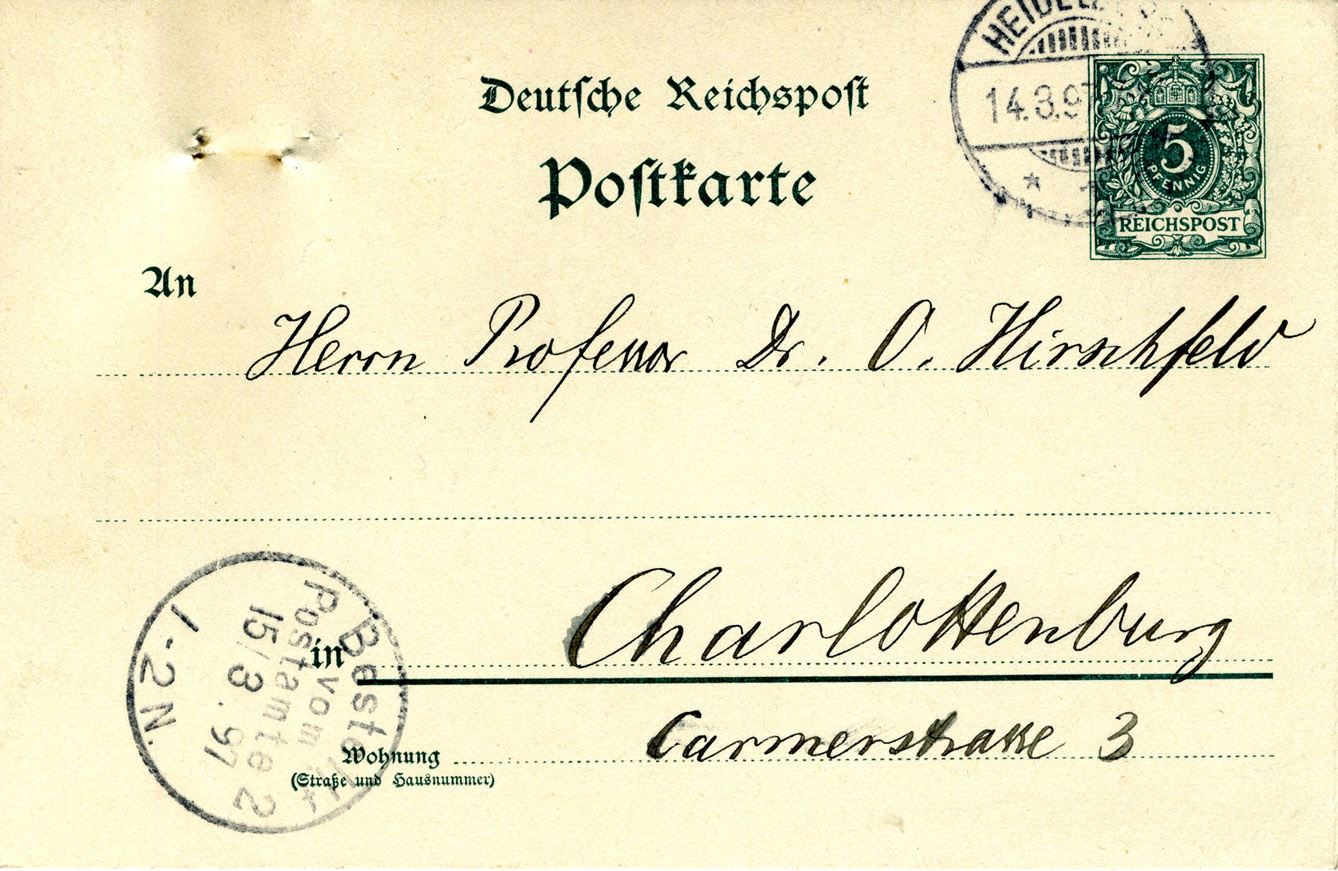 HEIDELB
14.3.97
Deutſche Reichspost
Poſtkarte
5
PFENNIG
REICHSPOST
An
Herrn Professor Dr. O. Hirschfeld
in Charlottenburg
Wohnung Carmerstrasse 3
(Straße und Hausnummer)
Bestellt
vom
Postamte 2
15/3.97
1-2N.